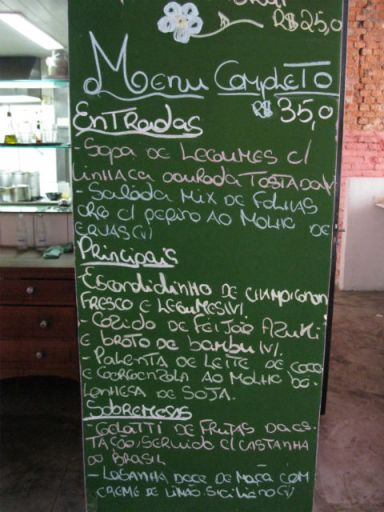 R$25,0
Menu Completo
R$35,0
Entradas
- Sopa de Legumes c/
linhaça dourada Tostada(v)
- Salada Mix de Folhas
org c/ pepino ao Molho de
ervas(v)
Principais
- Escondidinho de champignon
fresco e legumes(v).
- Cozido de Feijão Azuki
e broto de bambu(v).
- Polenta de leite de coco
e gorgonzola ao molho de
lenhesa de soja.
Sobremesas
- Gelatti de Frutas da es-
tação, servido c/ castanha
do Brasil
- Lasanha doce de maçã com
creme de limão siciliano(v)